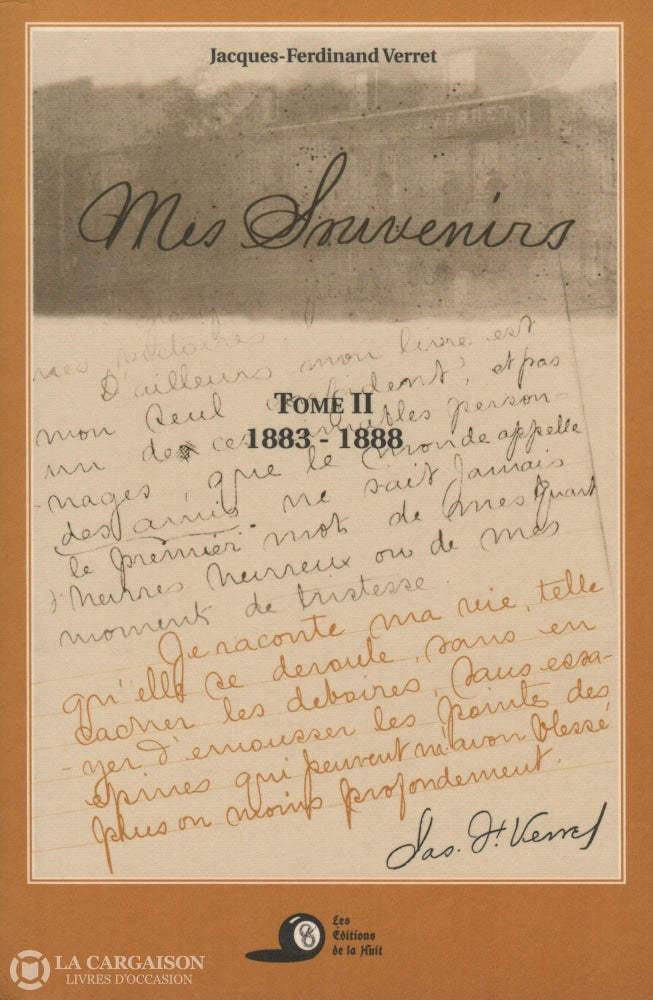 Jacques-Ferdinand Verret
Mes Souvenirs
D'ailleurs mon livre est
mon seul confident, et pas
TOME II
un de ces person-
1883 - 1888
nages, que le monde appelle
des amis ne sait jamais
le premier mot de mes quart
d'heures heureux ou de mes
moment de tristesse.
Je raconte ma vie, telle
qu'elle se deroule, sans en
cacher les deboires, sans essa-
-yer d'emousser les pointes des
epines qui peuvent m'avoir blessé
plus ou moins profondement.
Jas. Fd. Verret
8
Les
Éditions
de la Nuit
LA CARGAISON
LIVRES D'OCCASION